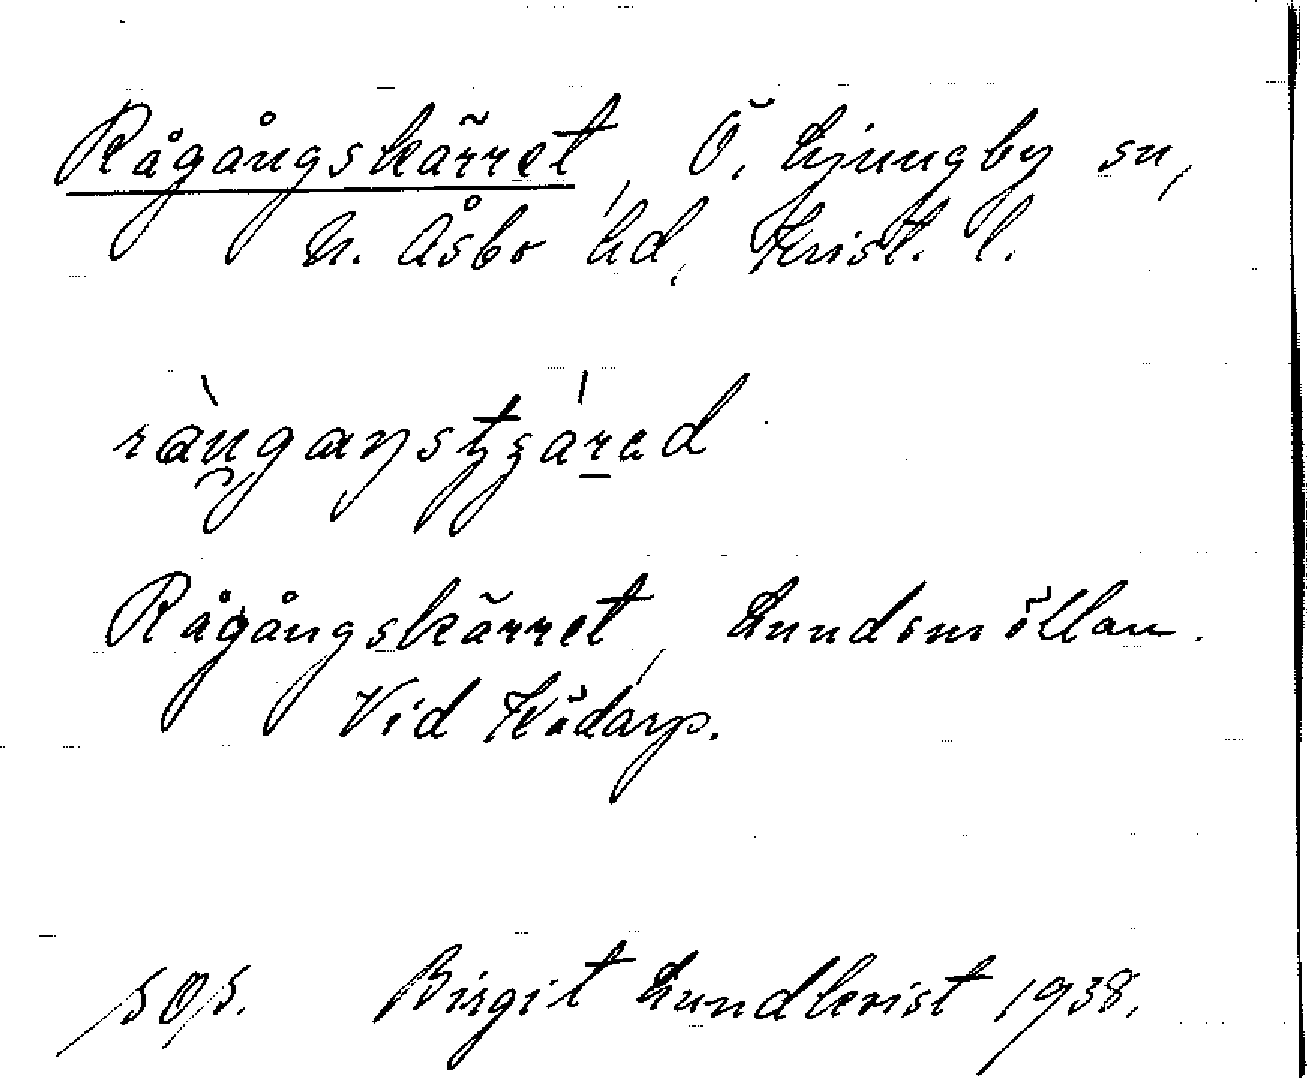 Rågångskärret, Ö. Ljungby sn,
N. Åsbo hd, Krist. l.
Rågångskärret, Lundsmöllan.
VidKödarp.
Birgit Lundkvist 1938.